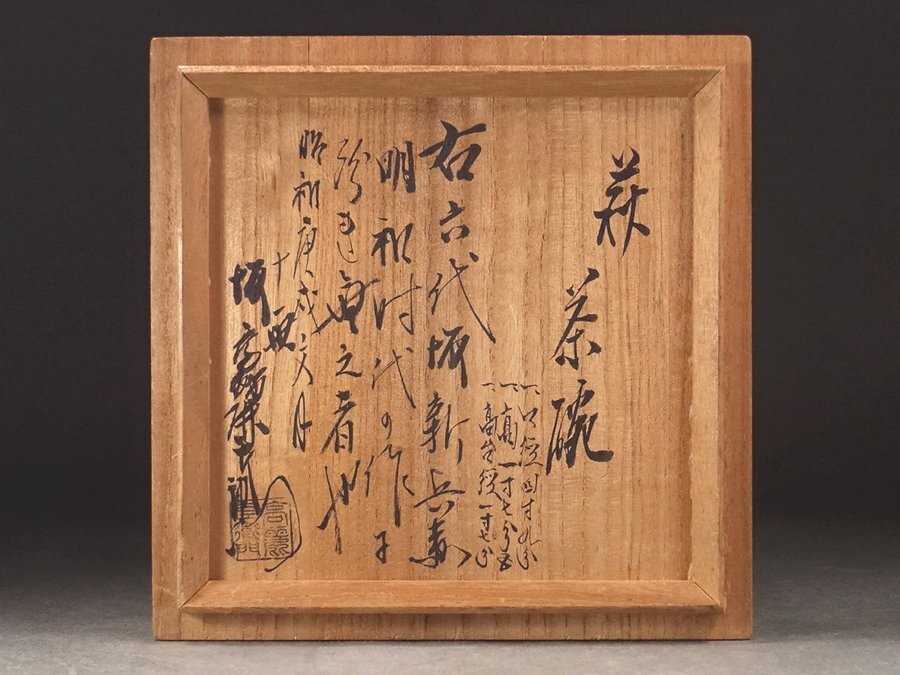 萩
茶碗
一、口径四寸九分
一、高一寸七分五
一、高台径一寸七分
右六代坂新兵衛
明和时代の作ニ
紛れ無之者也
昭和庚戌文月
十一世
坂高麗左衛門